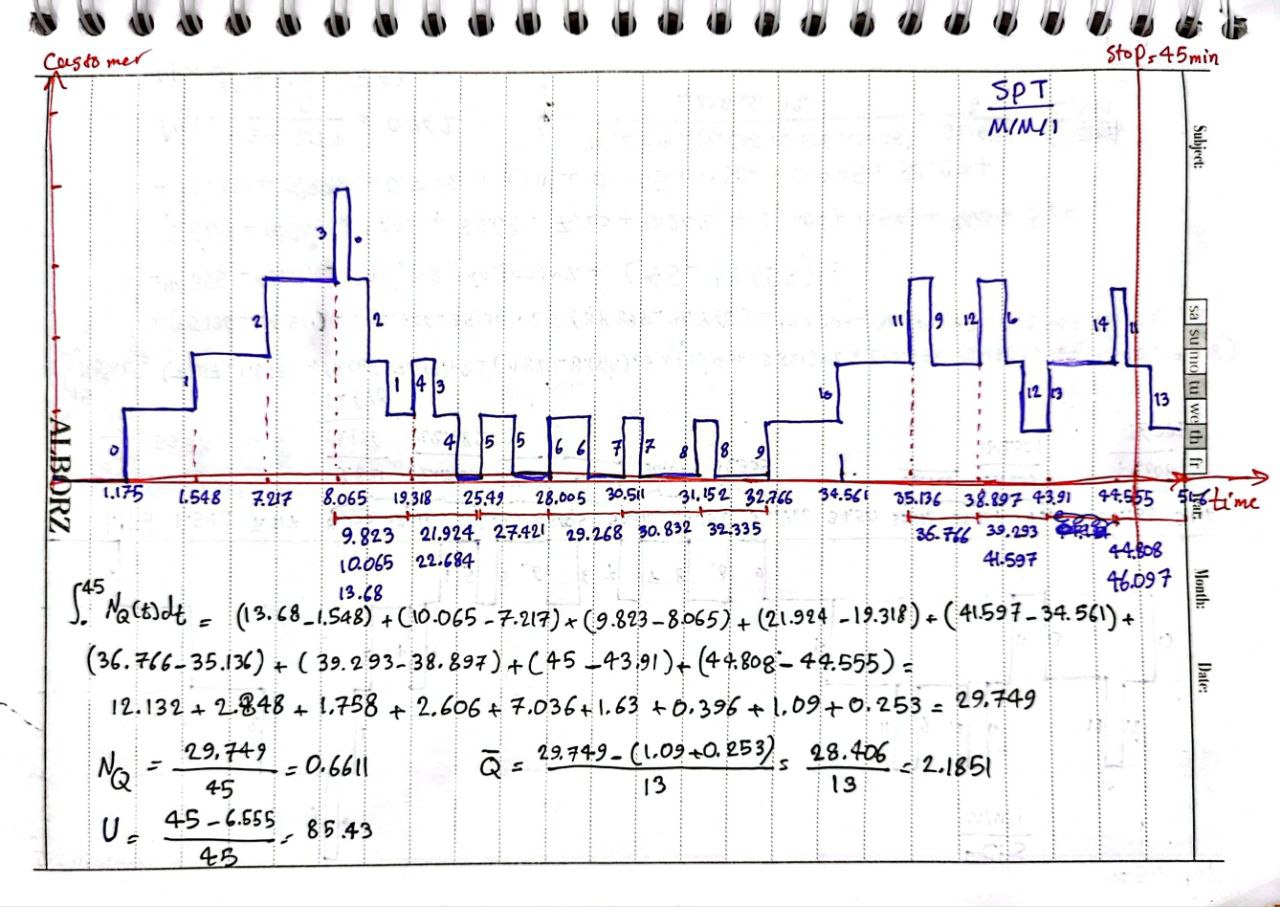 Customer
Stop = 45min
SPT
M/M/1
Subject:
3
2
2
1
1 4 3
11 9 12 6 14 11
0
4 5 5 6 6 7 7 8 8 9 10 12 13 13
sa su mo tu we th fr
ALBORZ
1.175 1.548 7.217 8.065 19.318 25.49 28.005 30.511 31.152 32.766 34.561 35.136 38.897 43.91 44.555
time
9.823 21.924 27.421 29.268 30.832 32.335 36.766 39.293
10.065 22.684 41.597 44.808
13.68 46.097
Year:
Month:
Date:
∫₀⁴⁵ N_Q(t)dt = (13.68-1.548) + (10.065-7.217) + (9.823-8.065) + (21.924-19.318) + (41.597-34.561) +
(36.766-35.136) + (39.293-38.897) + (45-43.91) + (44.808-44.555) =
12.132 + 2.848 + 1.758 + 2.606 + 7.036 + 1.63 + 0.396 + 1.09 + 0.253 = 29.749
N_Q = 29.749/45 = 0.6611 Q̄ = 29.749-(1.09+0.253)/13 = 28.406/13 = 2.1851
U = 45-6.555/45 = 85.43